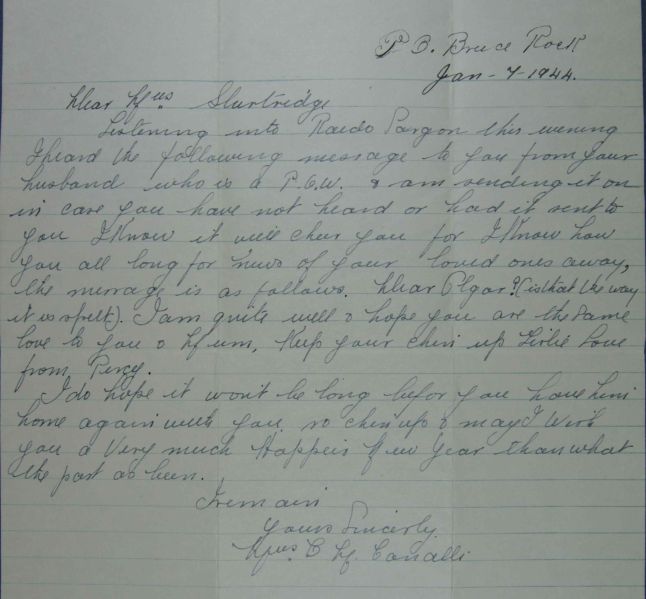 P.O. Bruce Rock
Jan - 7 - 1944.
Dear Mrs Sturtridge
Listening into Raido Sargon this evening
I heard the following message to you from your
husband who is a P.O.W. & am sending it on
in case you have not heard or had it sent to
you I know it will chear you for I know how
you all long for news of your loved ones away,
the message is as follows. Dear Olgar? (is that the way
it is spelt). I am quite well & hope you are the same
love to you & Mum, Keep your chin up Girlie Love
from Percy.
I do hope it wont be long befor you have him
home again with you, so chin up & may I wish
you a Very much Happeir New Year than what
the past as been.
I remain
yours Sincerly.
Mrs C. M.